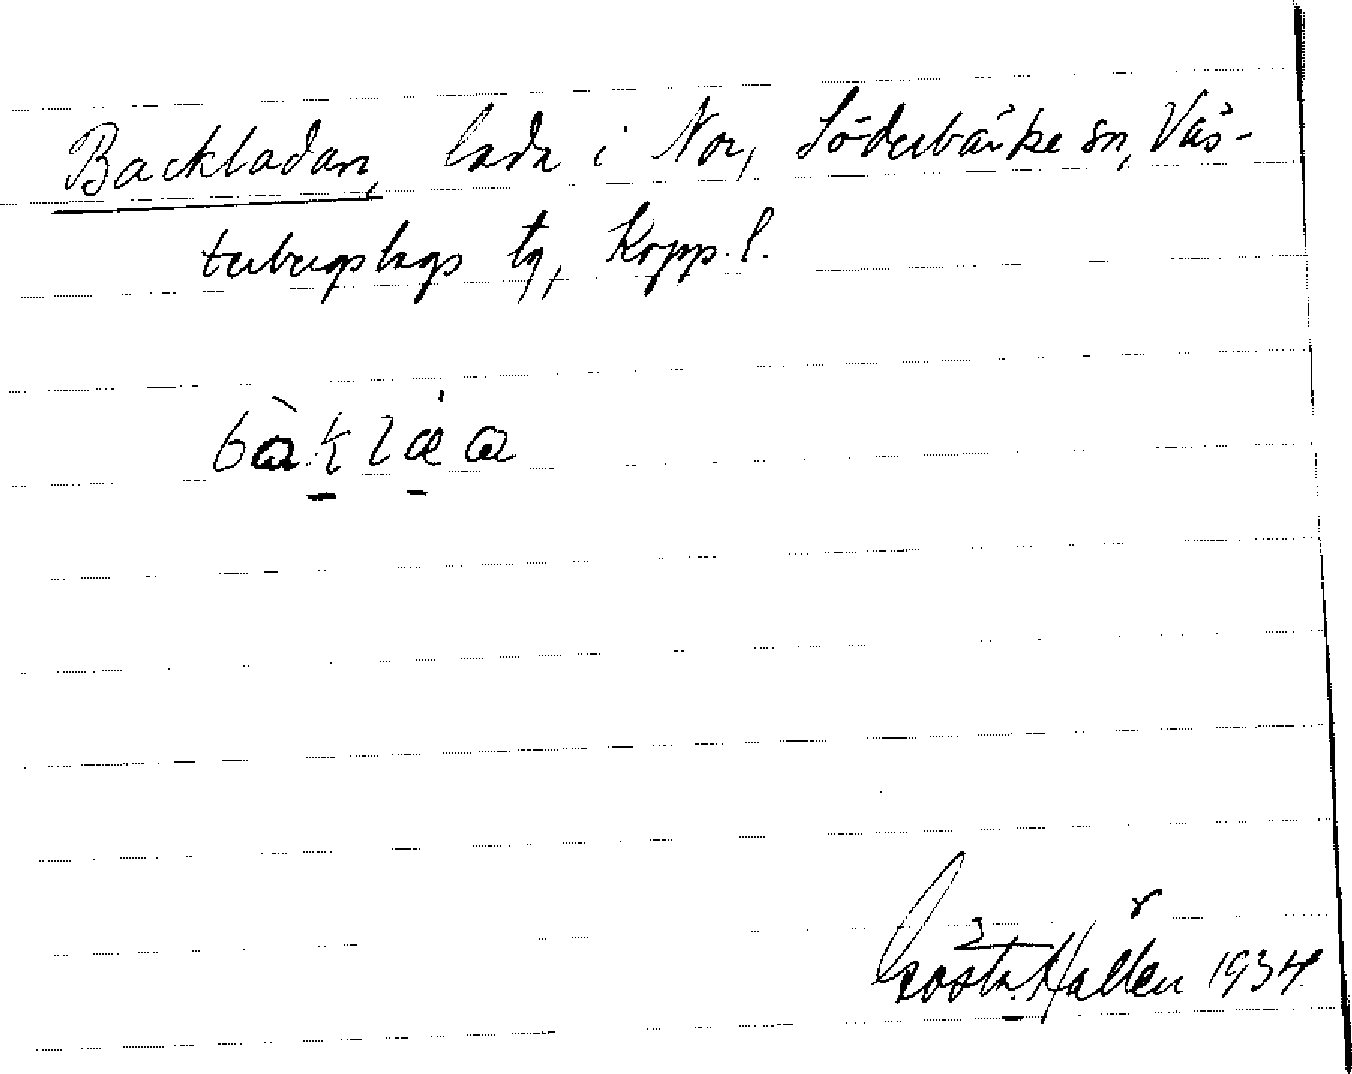 Backladan, lada i Nor, Söderbärke sn, Väs-
terbergslags tg, Kopp. l.
bàkláa
Gösta Hallén 1934